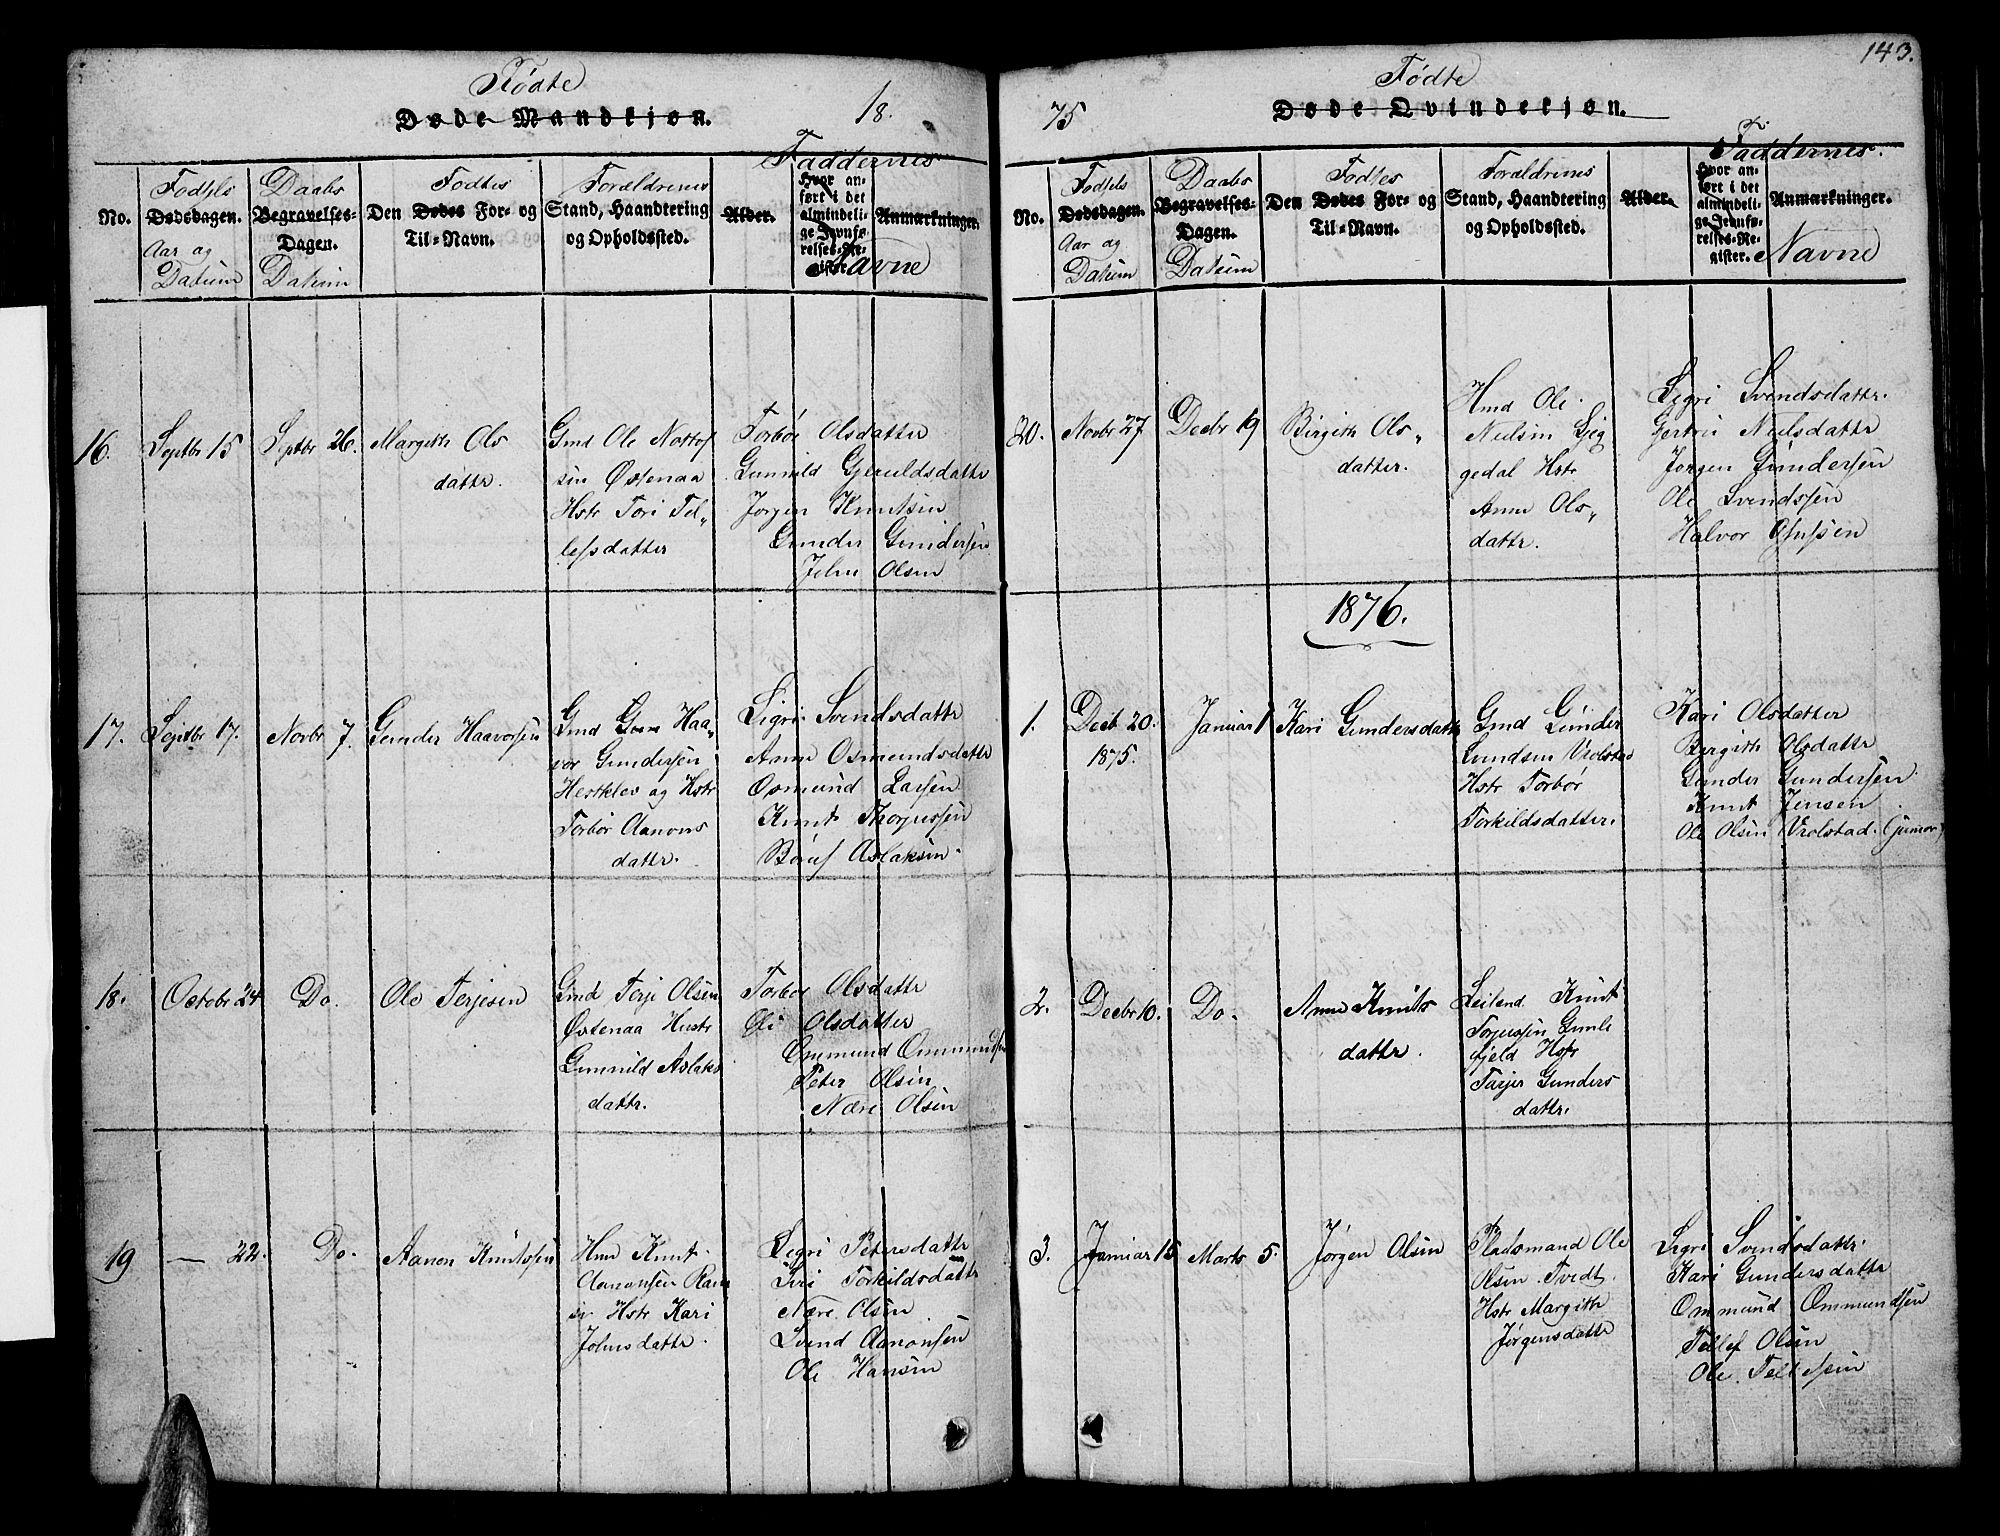 143.
Fødte
Døde Mandkjøn.
18.
Faddernes
No.
Fødsels
Dødsdagen.
Aar og
Datum
Daabs
Begravelses-
Dagen.
Datum
Fødtes
Den Dødes For- og
Til-Navn.
Forældrenes
Stand, Haandtering
og Opholdssted.
Alder.
Hvor an-
ført i det
almindeli-
ge Jevnfø-
relses-Re-
gister.
Anmærkninger.
Navne
16.
Septbr 15
Septbr 26.
Margith Ols
datter.
Gmd Ole Nottof
sen Østenaa
Hstr Tori Tel-
lefsdatter
Torbør Olsdatter
Gunnild Gjeruldsdattr
Jørgen Knutsen
Gunder Gundersen
John Olsen
17.
Septbr 17.
Novbr 7.
Gunder Haavorsen
Gmd Gun Haa-
vor Gundersen
Hestklev og Hstr
Torbør Aanons
dattr.
Sigri Svendsdattr
Anne Osmundsdattr
Osmund Larsen
Knut Thorjussen
Aslaksen.
18.
Octobr 24
Do.
Ole Terjesen
Gmd Terje Olsen
Østenaa Hustr
Gunnild Aslaks
dattr.
Torbør Olsdattr
Olsdatter
Ommund Ommundsen
Peter Olsen
Nære Olsen
19
— 22.
Do.
Aanon Knutssen
Hmd Knut
Aanonsen Ram
se Hstr Kari
Johnsdattr.
Sigri Petersdattr
Siri Torkildsdattr
Nære Olsen
Svend Aanonsen
Ole Hansen
Fødte
75
Døde Qvindekjøn.
Faddernes.
No.
Fødsels
Dødsdagen.
Aar og
Datum
Daabs
Begravelses-
Dagen.
Datum
Fødtes
Den Dødes For- og
Til-Navn.
Forældrenes
Stand, Haandtering
og Opholdssted.
Alder.
Hvor an-
ført i det
almindeli-
ge Jevnfø-
relses-Re-
gister.
Anmærkninger.
Navne
20.
Novbr 27
Decbr 19
Birgith Ols-
datter.
Hmd Ole
Nielsen Ljeg
gedal Hstr
Anne Ols-
dattr.
Sigri Svendsdattr.
Gjertru Nielsdattr
Jørgen Gundersen
Ole Svendssen
Halvor
1876.
1.
Decb 20.
1875.
Januar 1
Kari Gundersdattr
Gmd Gunder
Gundsen Vrolstad
Hstr Torbør
Torkildsdatter.
Kari Olsdatter
Bergith Olsdattr
Gunder Gundersen.
Knut Jensen
Ole Olsen Vrolstad. (junior)
2.
Decbr 10.
Do.
Anne Knuts
dattr.
Leilend Knut
Torjussen Gunle
fjeld Hstr
Tarjer Gunders
dattr.
3.
Januar 15
Marts 5.
Jørgen Olsen
Pladsmand Ole
Olsen Tvedt.
Hstr Margith
Jørgensdattr
Sigri Svendsdattr.
Kari Gundersdattr
Ommund Ommundsen
Tellef Olsen
Ole Tellefsen